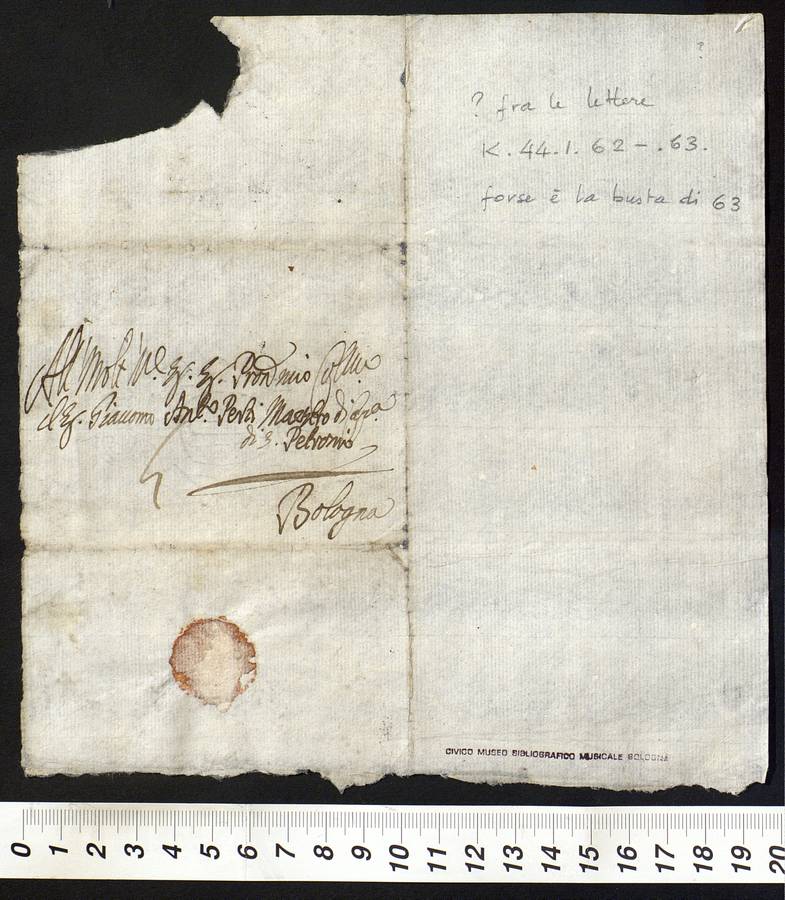 ? fra le lettere
K. 44.1. 62 - .63.
forse è la busta di 63
?
All' Molt' Ill.e Sig. Sig. Pron
il Sig. Giacomo Ant.o Perti Maestro di Cap.a
di S. Petronio
Bologna
CIVICO MUSEO BIBLIOGRAFICO MUSICALE BOLOGNA
0 1 2 3 4 5 6 7 8 9 10 11 12 13 14 15 16 17 18 19 20